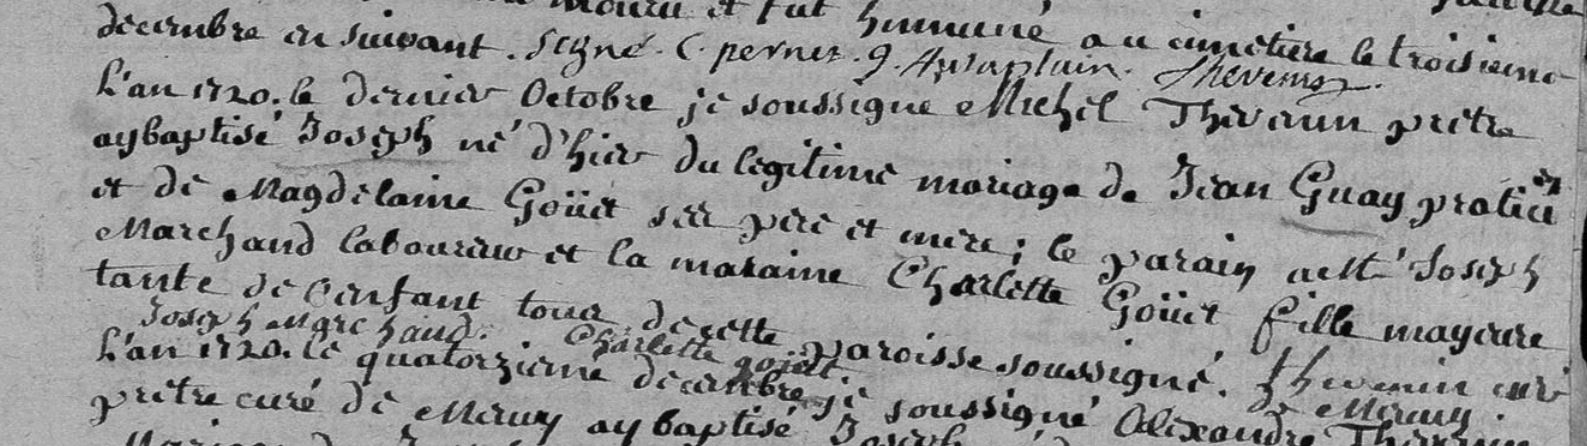 et fut humané au cimetiere le troisieme
decembre en suivant. Signé. C. perner. g. Thevenin.
L'an 1720. le dernier Octobre je soussigne Michel Thevenin prêtre
ay baptisé Joseph né d'hier du legitime mariage de Jean Guay praticien
et de Magdelaine Goüet ses pere et mere ; le parain a etté Joseph
Marchand laboureur et la maraine Charlette Goüet fille mayeure
tante de l'enfant tous de cette paroisse soussigné. Thevenin curé
Joseph Marchand. Charlette gojet de Mervuy.
L'an 1720. le quatorzieme decembre je soussigné Alexandre
prêtre curé de Mervuy ay baptisé Joseph